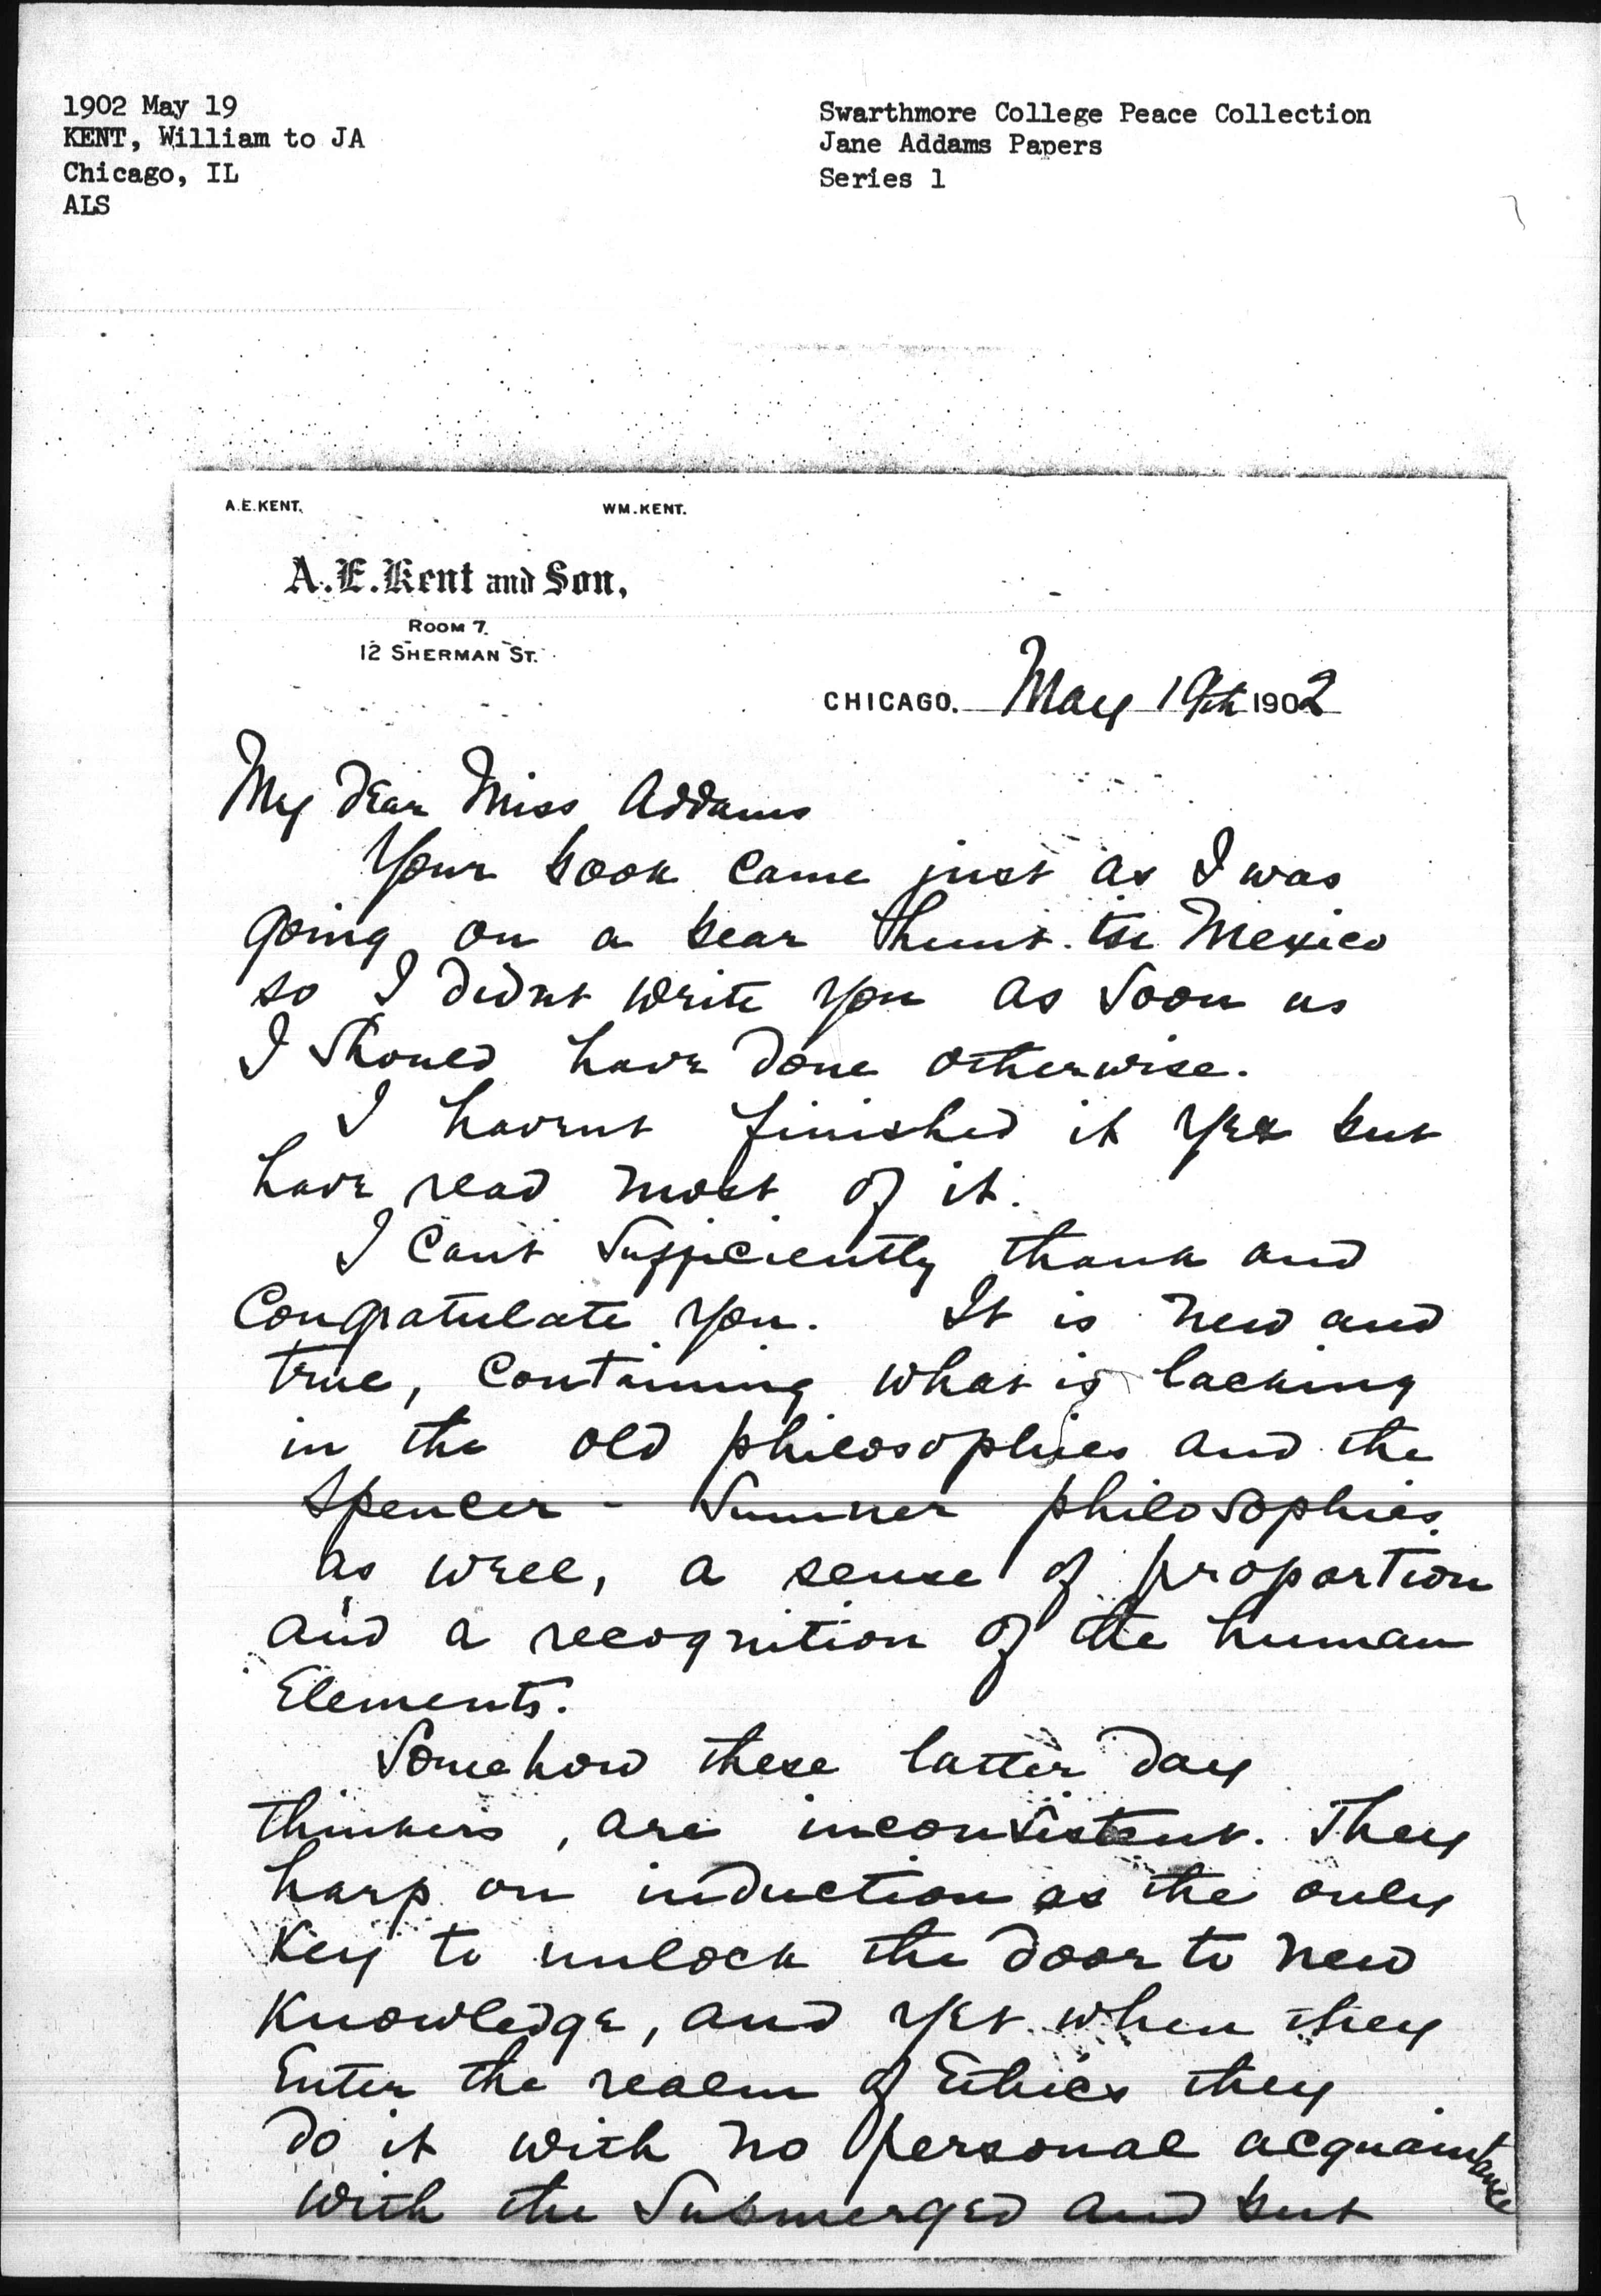 1902 May 19
KENT, William to JA
Chicago, IL
ALS
Swarthmore College Peace Collection
Jane Addams Papers
Series 1
A.E.KENT. WM.KENT.
A.E.Kent and Son,
ROOM 7.
12 SHERMAN ST.
CHICAGO. May 19th 1902
My Dear Miss Addams
Your book came just as I was
going on a bear hunt to Mexico
so I didnt write you as soon as
I should have done otherwise.
I havent finished it yet but
have read most of it.
I cant sufficiently thank and
Congratulate you. It is new and
true, containing what is lacking
in the old philosophies and the
Spencer - Sumner philosophies
as well, a sense of proportion
and a recognition of the human
Elements.
Somehow these latter day
thinkers, are inconsistent. They
harp on induction as the only
Key to unlock the door to new
Knowledge, and yet when they
Enter the realm of Ethics they
do it with no personal acquaintance
with the Submerged and but